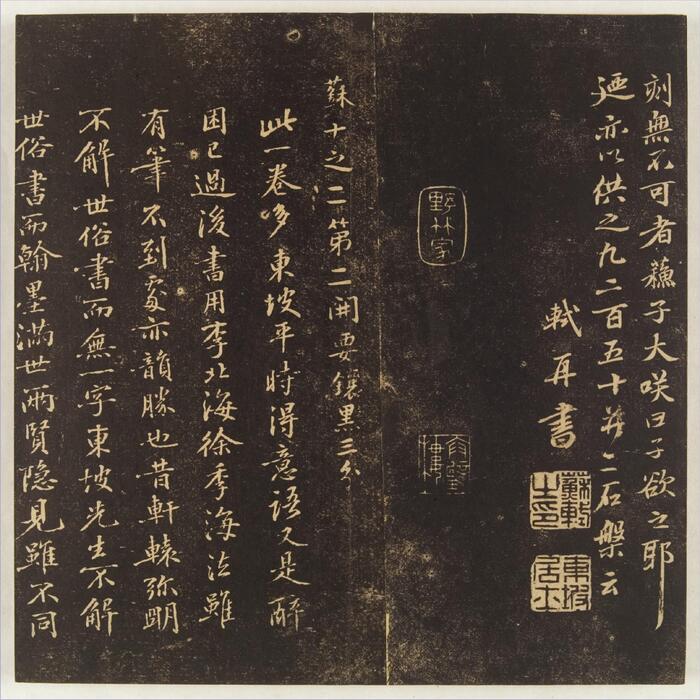 刻無不可者蘓子大咲曰子欲之耶
迺亦以供之凡二百五十并二石槃云
軾再書
蘇軾之印
東坡居士
蘇十之二第二開要鑲黑三分
此一卷多東坡平時得意語又是醉
困已過後書用李北海徐季海法雖
有筆不到處亦韻勝也昔軒轅弥明
不解世俗書而無一字東坡先生不解
世俗書而翰墨滿世兩賢隐見雖不同